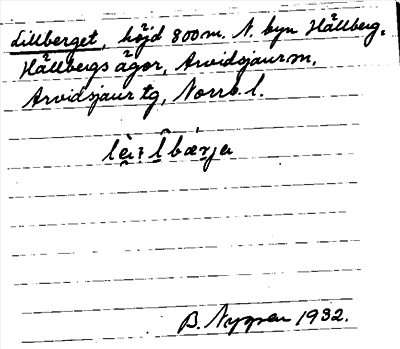 Lillberget, höjd 800 m. N. byn Hällberg,
Hällbergs ägor, Arvidsjaur sn,
Arvidsjaur tg, Norrb. l.
B. Nygren 1932.